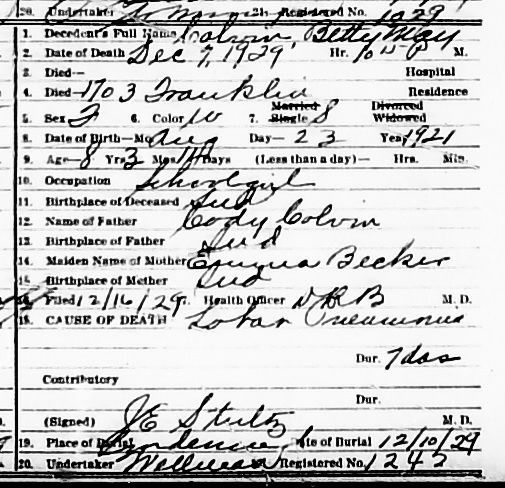 20. Undertaker 21. Registered No. 1029
1. Decedent's Full Name Colvin Betty May
2. Date of Death Dec 7, 1929 Hr. 10 15 P M.
3. Died— Hospital
4. Died— 1703 Franklin Residence
5. Sex F 6. Color W 7. Married Single S Divorced Widowed
8. Date of Birth—Mo Aug Day— 23 Year 1921
9. Age— 8 Yrs 3 Mos 14 Days (Less than a day)— Hrs. Min.
10. Occupation School girl
11. Birthplace of Deceased Ind
12. Name of Father Cody Colvin
13. Birthplace of Father Ind
14. Maiden Name of Mother Emma Becker
15. Birthplace of Mother Ind
16. Filed 12/16/29 17. Health Officer M. D.
18. CAUSE OF DEATH Lobar Pneumonia
Dur. 7 das
Contributory
Dur.
(Signed) J E Stultz M. D.
19. Place of Burial Date of Burial 12/10/29
20. Undertaker Wellman Registered No. 1242